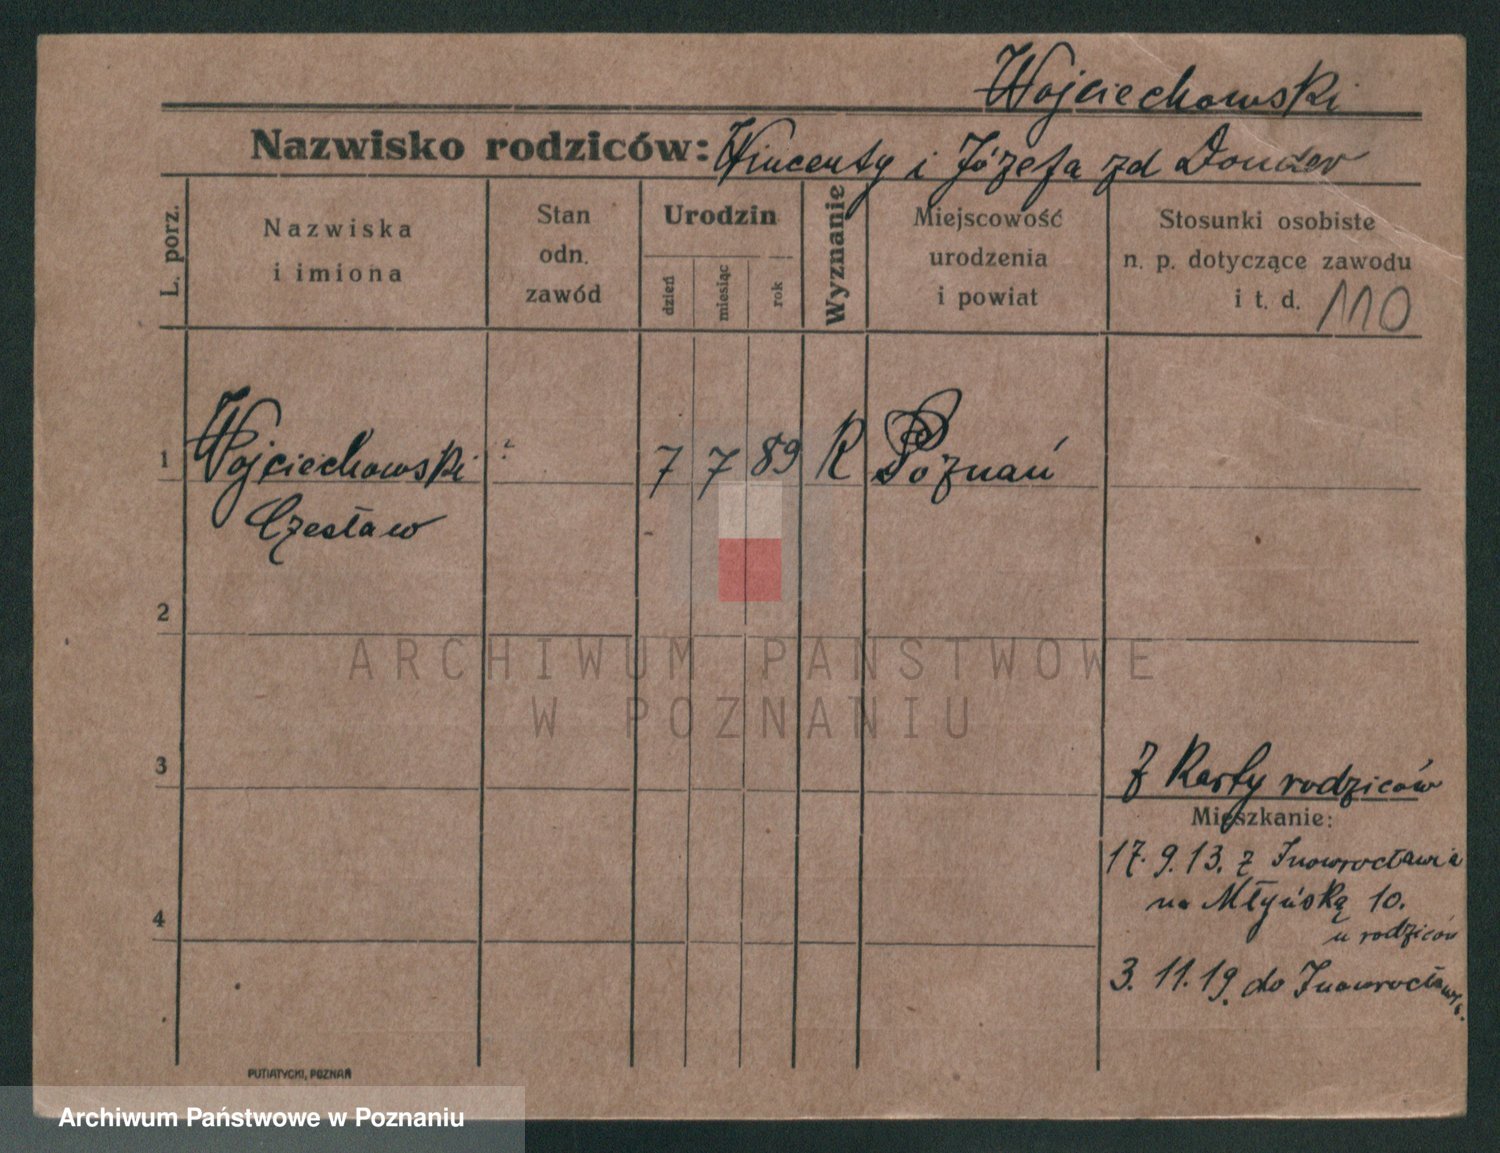 Wojciechowski
Nazwisko rodziców: Wincenty i Józefa zd Donder
L. porz.
Nazwiska
i imiona
Stan
odn.
zawód
Urodzin
dzień
miesiąc
rok
Wyznanie
Miejscowość
urodzenia
i powiat
Stosunki osobiste
n. p. dotyczące zawodu
i t. d. 110
1 Wojciechowski 7 7 89 R Poznań
Czesław
2
3
z Karty rodziców
Mieszkanie:
17. 9. 13. z Inowrocławia
na Młyńską 10.
u rodziców
4
3. 11. 19. do Inowrocławia.
PUTIATYCKI, POZNAŃ
ARCHIWUM PAŃSTWOWE
W POZNANIU
Archiwum Państwowe w Poznaniu